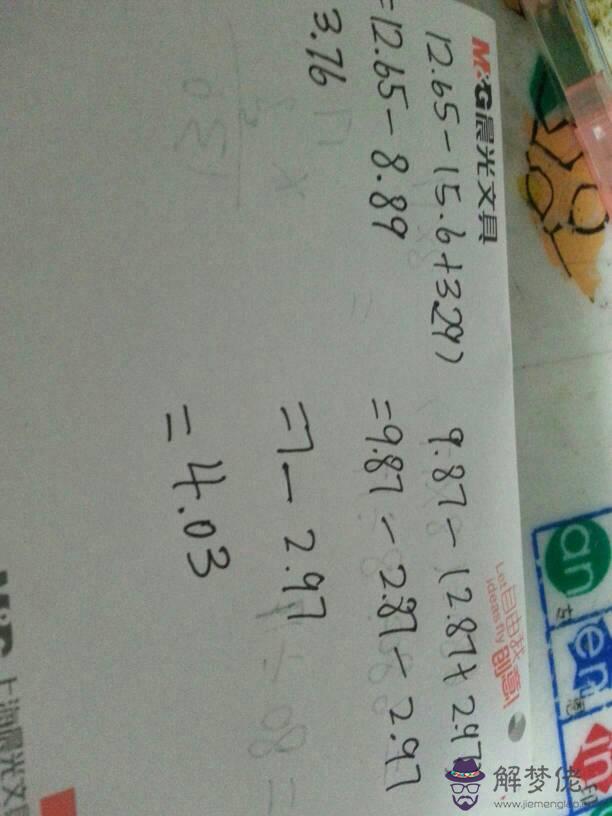 M&G晨光文具
12.65-(5.6+3.29)
=12.65-8.89
3.76
9.87-(2.87+2.97
=9.87-2.87-2.97
=7-2.97
=4.03
Let
ideas fly
自由
创意!
an
en
in
上海晨光文具
解梦佬
www.jiemenglao.com